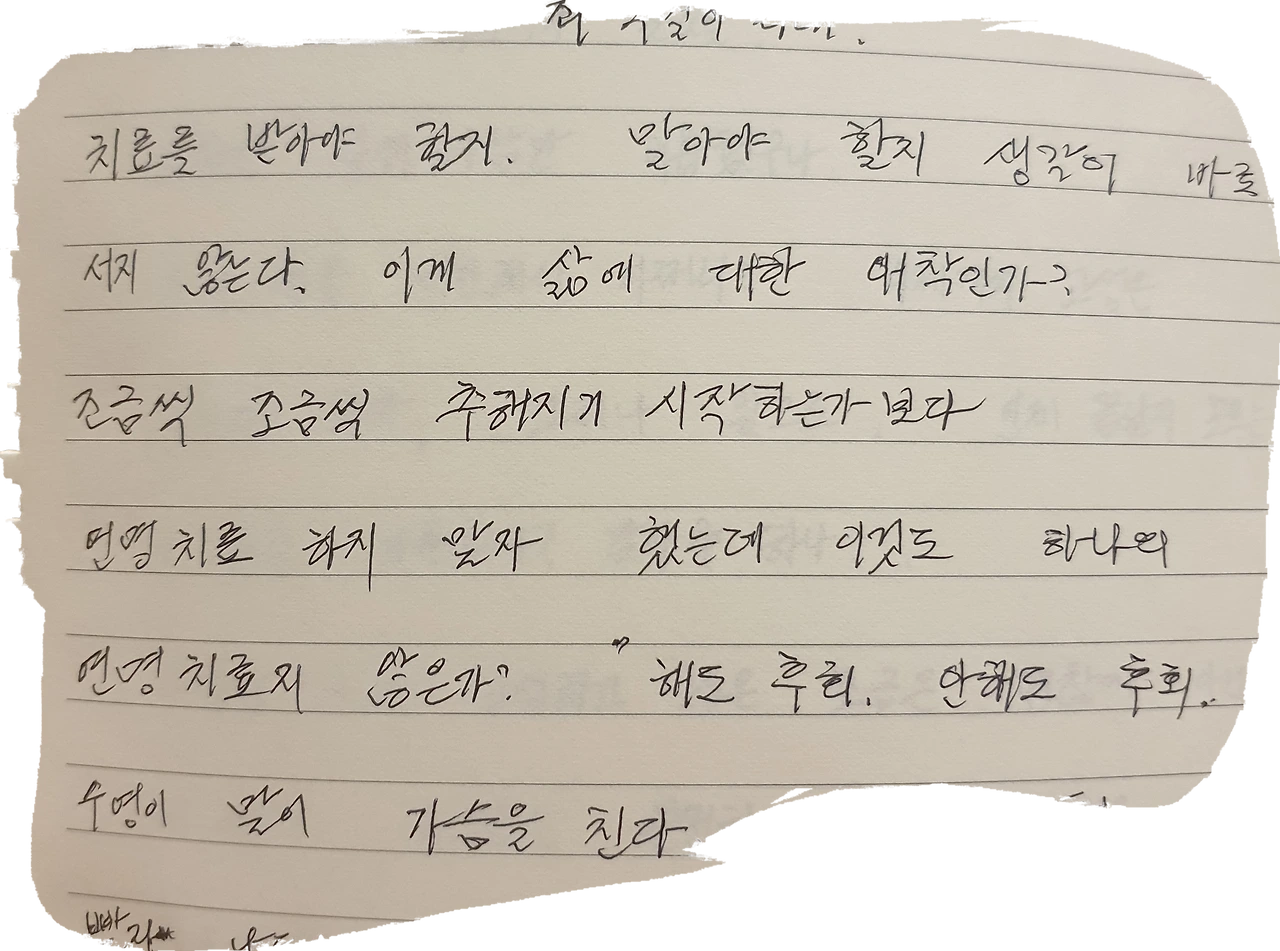 치료를 받아야 할지. 말아야 할지 생각이 바로
서지 않는다. 이게 삶에 대한 애착인가?
조금씩 조금씩 추해지기 시작하는가 보다
연명치료 하지 말자 했는데 이것도 하나의
연명치료지 않은가? "해도 후회. 안해도 후회.
수영이 말이 가슴을 친다